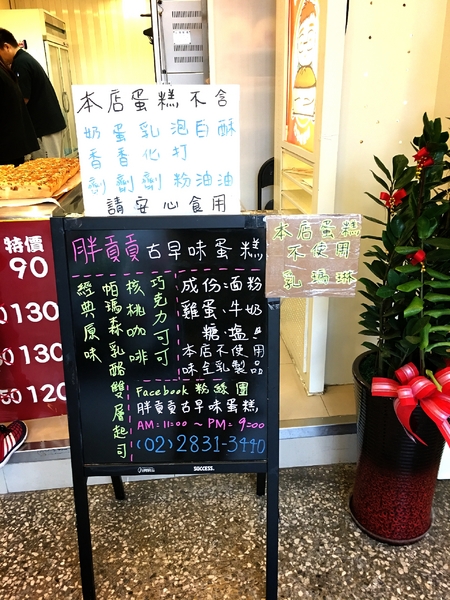 本店蛋糕不含
奶香劑
蛋香劑
乳化劑
泡打粉
白油
酥油
請安心食用
本店蛋糕
不使用
乳瑪琳
胖貢貢古早味蛋糕
巧克力可可
核桃咖啡
帕瑪森乳酪雙層起司
經典原味
成份:面粉
雞蛋、牛奶
糖、塩!!
本店不使用
味全乳製品
Facebook 粉絲團
胖貢貢古早味蛋糕
AM:11:00 ~ PM:9:00
(02)2831-3440
SUCCESS.
特價
90
130
130
50 120